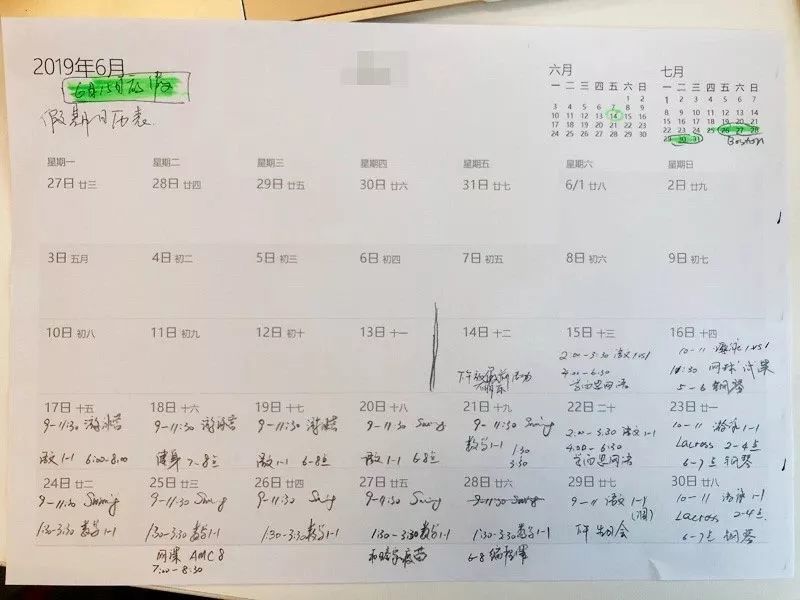 2019年6月
6月15日
假期日历表.
六月
一 二 三 四 五 六 日
1 2
3 4 5 6 7 8 9
10 11 12 13 14 15 16
17 18 19 20 21 22 23
24 25 26 27 28 29 30
七月
一 二 三 四 五 六 日
1 2 3 4 5 6 7
8 9 10 11 12 13 14
15 16 17 18 19 20 21
22 23 24 25 26 27 28
29 30 31
Boston
星期一 星期二 星期三 星期四 星期五 星期六 星期日
27日 廿三 28日 廿四 29日 廿五 30日 廿六 31日 廿七 6/1 廿八 2日 廿九
3日 五月 4日 初二 5日 初三 6日 初四 7日 初五 8日 初六 9日 初七
10日 初八 11日 初九 12日 初十 13日 十一 14日 十二 15日 十三 16日 十四
下午
2:00-3:30 语文 1vs1
4:00-6:30
网语
10-11 游泳 1vs1
网球
5-6 钢琴
17日 十五 18日 十六 19日 十七 20日 十八 21日 十九 22日 二十 23日 廿一
9-11:30 游泳营
语文 1-1 6:00-8:00
9-11:30 游泳营
健身 7-8点
9-11:30 游泳营
语文 1-1 6-8点
9-11:30 Swing
语文 1-1 6-8点
9-11:30 Swing
数学 1-1 1:30
3:30
2:00-3:30 语文 1-1
4:00-6:30
网语
10-11 游泳 1-1
Lacross 2-4点
6-7点 钢琴
24日 廿二 25日 廿三 26日 廿四 27日 廿五 28日 廿六 29日 廿七 30日 廿八
9-11:30 Swimming
1:30-3:30 数学 1-1
9-11:30 Swing
1:30-3:30 数学 1-1
网课 AMC 8
7:00-8:30
9-11:30 Swing
1:30-3:30 数学 1-1
9-11:30 Swing
1:30-3:30 数学 1-1
疫苗
9-11:30 Swimming
1:30-3:30 数学 1-1
6-8 编程课
9-11 语文 1-1
下午 生日会
10-11 游泳 1-1
Lacross 2-4点
6-7点 钢琴